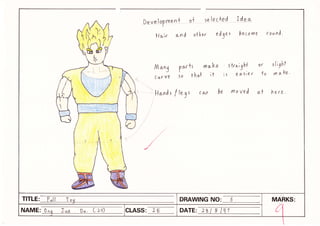 Development of selected Idea
Hair and other edges become round.
Many parts make straight or slight
curve so that it is easier to make.
Hands/legs can be moved at here.
TITLE: Pull Toy
DRAWING NO: 3
MARKS:
9
NAME: Ong Jun Da (24)
CLASS: 2E
DATE: 28/8/97